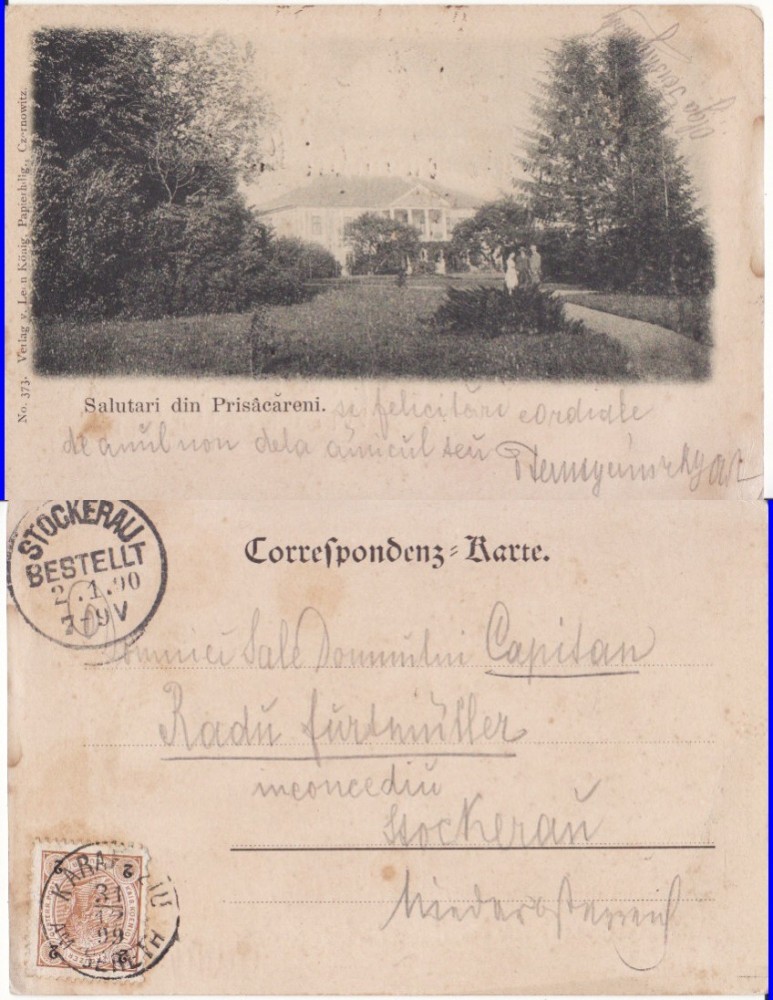 No. 373. Verlag v. Leon König, Papierhdlg., Czernowitz.
Olga
Salutari din Prisâcăreni. si felicitări cordiale
de anul nou dela amicul seu
STOCKERAU 1
BESTELLT
2.1.90
7-9V
Correspondenz-Karte.
Domnici Sale Domnului Capitan
Radu Fürtmüller
in concediu
Stockerau
Niederösterreich
2 2
KARAPCZIU
31
12
99
AM SERETH
2 2